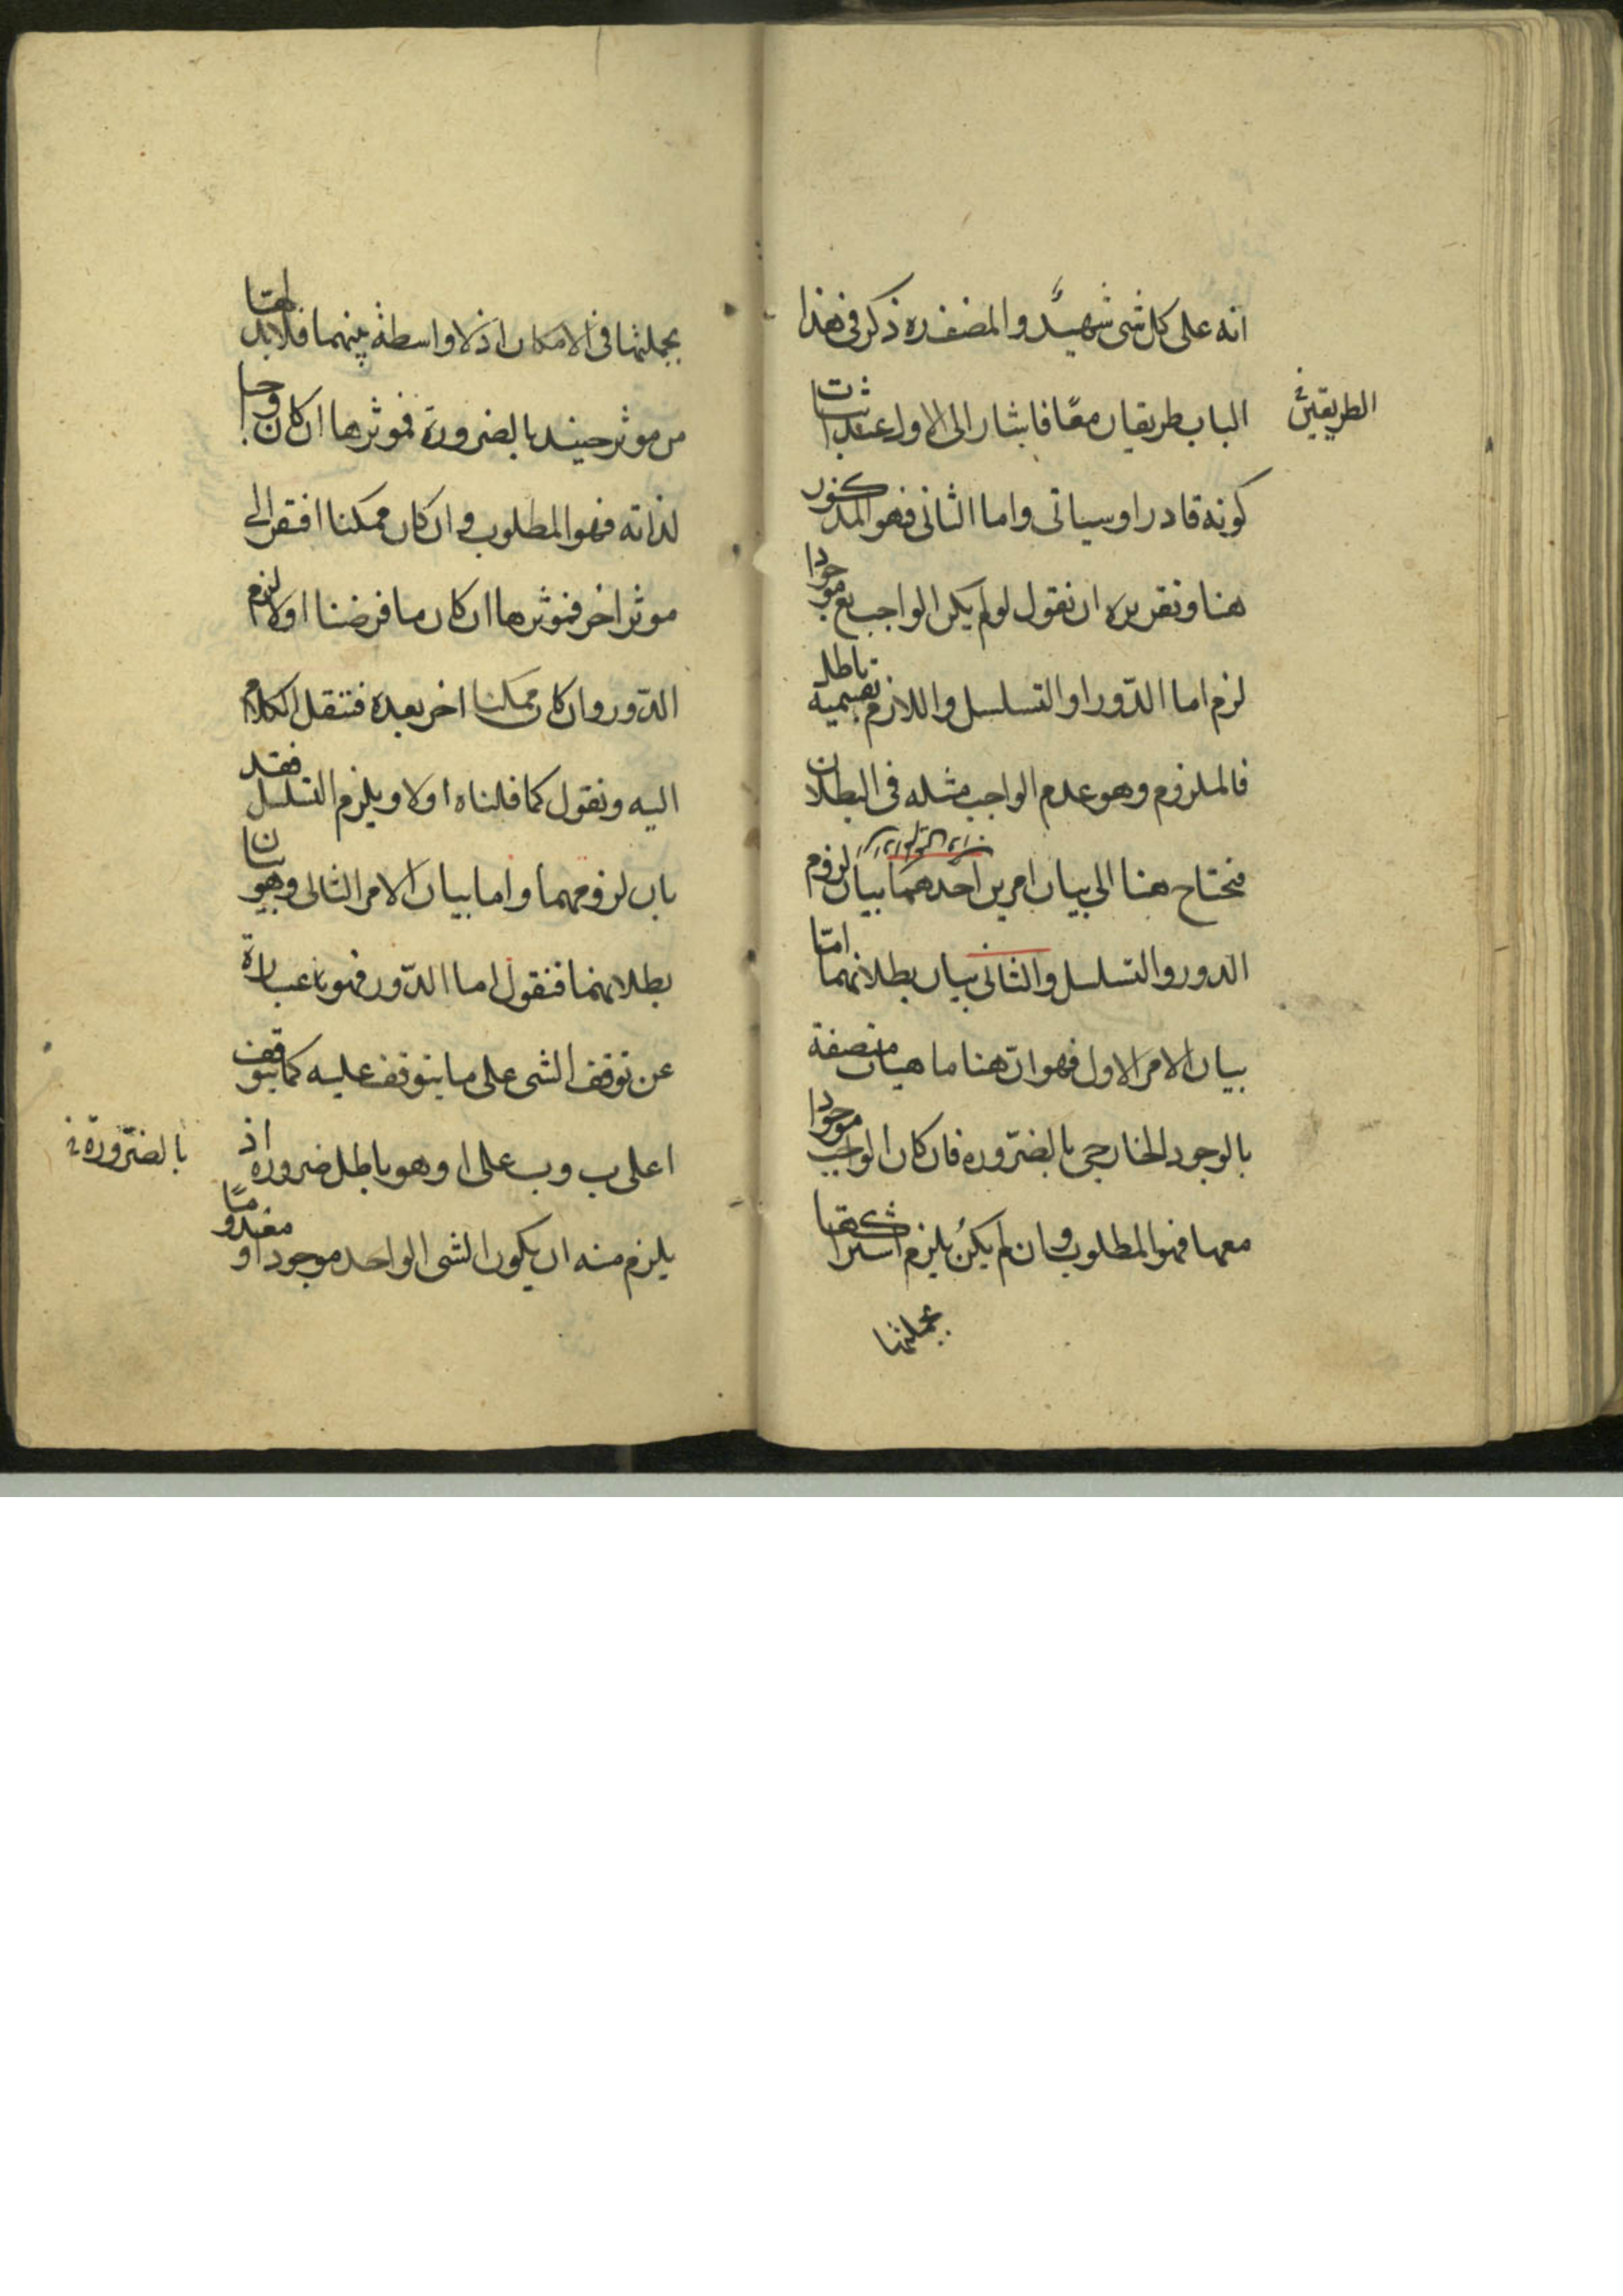 انه على كل شى شهيد والمصنف ره ذكر فى هذا
الباب طريقان معًا فاشار الى الاول عند اثبات
الطريقين
كونه قادرا وسياتى واما الثانى فهو المذكور
هنا وتقريره ان نقول لو لم يكن الواجب تع موجودا
لزم اما الدّور او التسلسل واللازم بقسميه باطل
فالملزوم وهو عدم الواجب مثله فى البطلان
فتحتاج هنا الى بيان امرين احدهما بيان لزوم
الدور والتسلسل والثانى بيان بطلانهما امّا
بيان الامر الاول فهو انّ هنا ماهيات متصفة
بالوجود الخارجى بالضّروره فان كان الواجب موجودا
معها فهو المطلوب وان لم يكن يلزم اشتراكها
بجملتها
بجملتها فى الامكان اذ لا واسطة بينهما فلابد لها
من موثر حينئد بالضرورة فموثرها ان كان واجبا
لذاته فهو المطلوب وان كان ممكنا افتقر الى
موثر اخر فموثرها ان كان ما فرضنا اولا لزم
الدّور وان كان ممكنا اخر بعده فتنقل الكلام
اليه ونقول كما قلناه اولا ويلزم التسلسل فقد
بان لزومهما واما بيان الامر الثانى وهو بيان
بطلانهما فنقول اما الدّور فهو عبارة
عن توقف الشى على ما يتوقف عليه كما يتوقف
ا على ب وب على ا وهو باطل ضروره اذ
بالضّرورة
يلزم منه ان يكون الشى الواحد موجودا ومعدومًا